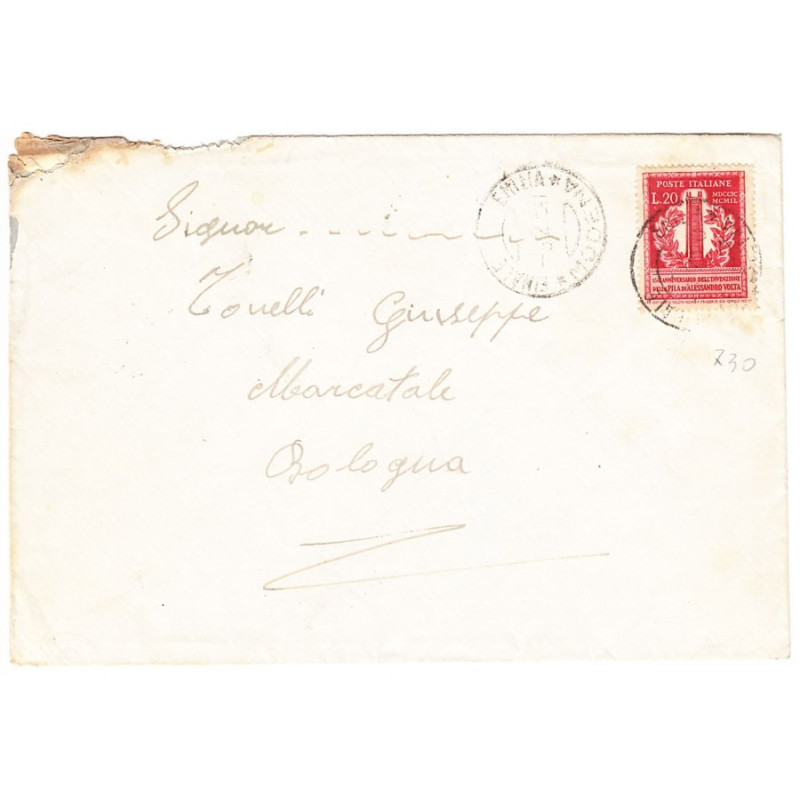 POSTE ITALIANE
L.20 MDCCIC
MCMIL
150° ANNIVERSARIO DELL'INVENZIONE
DELLA PILA DI ALESSANDRO VOLTA
FINALE EMILIA * MODENA *
Signor
Tonelli Giuseppe
Marcatale
Bologna
730